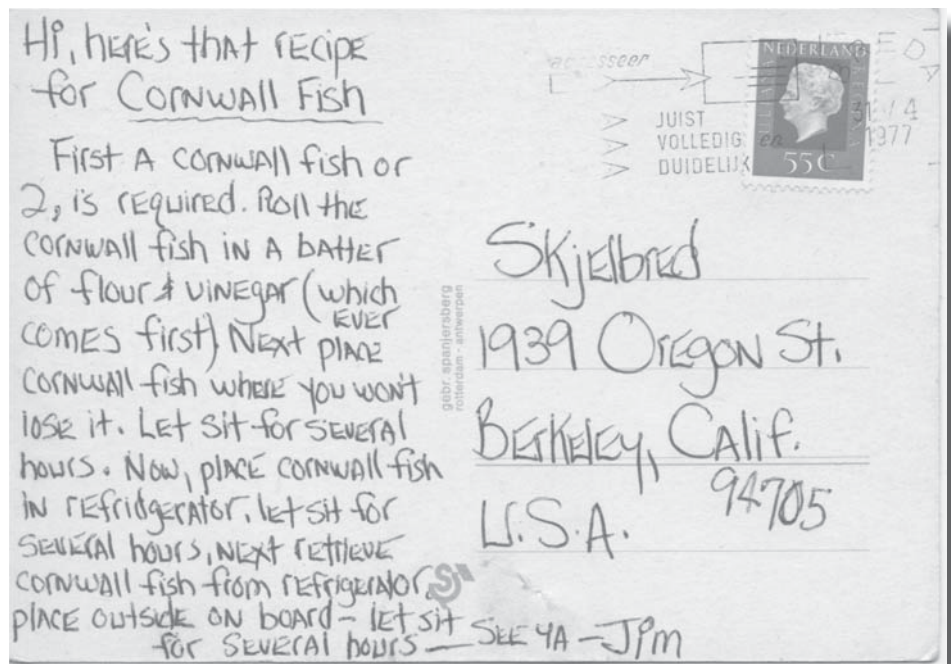 Hi, here's that recipe
for Cornwall Fish
First a cornwall fish or
2, is required. Roll the
cornwall fish in a batter
of flour & vinegar (which
ever
comes first) Next place
cornwall fish where you won't
lose it. Let sit for several
hours. Now, place cornwall fish
in refridgerator. let sit for
several hours, next retrieve
cornwall fish from refrigerator,
place outside on board - let sit
for several hours — See ya - Jim
gebr. spanjersberg
rotterdam - antwerpen
adresseer
JUIST
VOLLEDIG en
DUIDELIJK
NEDERLAND
55c
1977
Skjelbred
1939 Oregon St.
Berkeley, Calif.
94705
U.S.A.